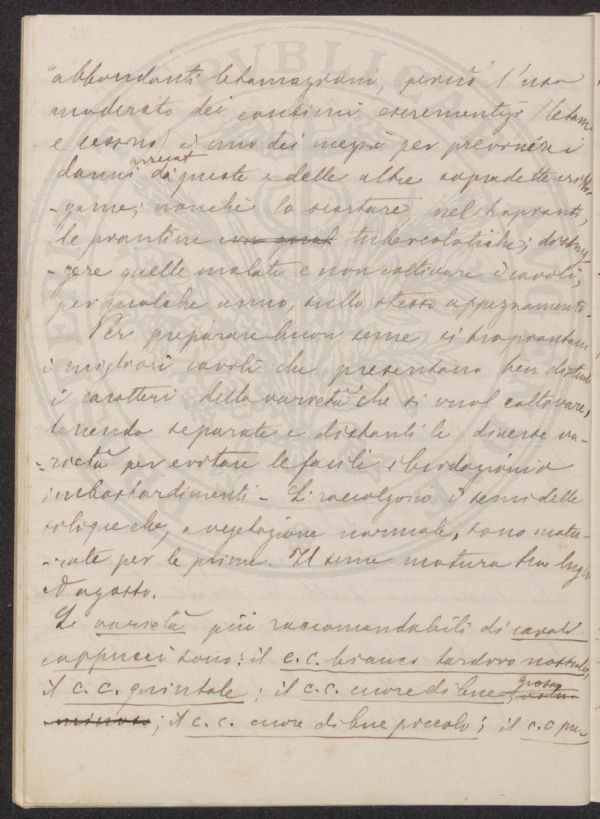 abbondanti letamazioni, perciò l'uso
moderato dei concimi escrementizi (letame
e cessono) è uno dei mezzi per prevenire i
danni arrecati da queste e delle altre sopradette crittogame
-game; nonché lo scartare, nel trapianti,
le piantine con quel tubercolotiche; distrug
-gere quelle malate e non coltivare i cavoli,
per qualche anno, sullo stesso appezzamento.
Per preparare buon seme si trapiantano
i migliori cavoli che presentano ben distinti
i caratteri della varietà che si vuol coltivare,
tenendo separate e distanti le diverse va-
-rietà per evitare le facili ibridazioni o
imbastardimenti - Si raccolgono i semi delle
silique che, a vegetazione normale, sono matu-
-rate per le prime. Il seme matura tra luglio
ed agosto.
Le varietà più raccomandabili di cavoli
cappucci sono: il c. c. bianco tardivo nostrale;
il c. c. quintale; il c. c. cuore di bue grosso
; il c. c. cuore di bue piccolo; il c. c. pu-